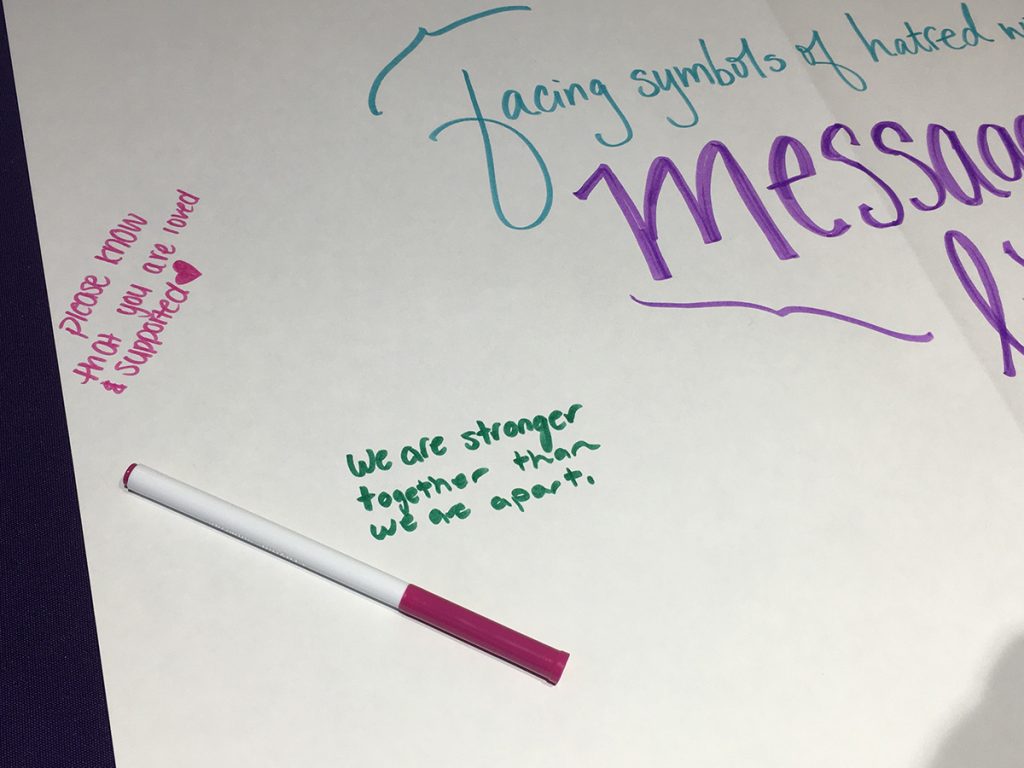 facing symbols of hatred
Messag
Please know
that you are loved
& supported
We are stronger
together than
we are apart.